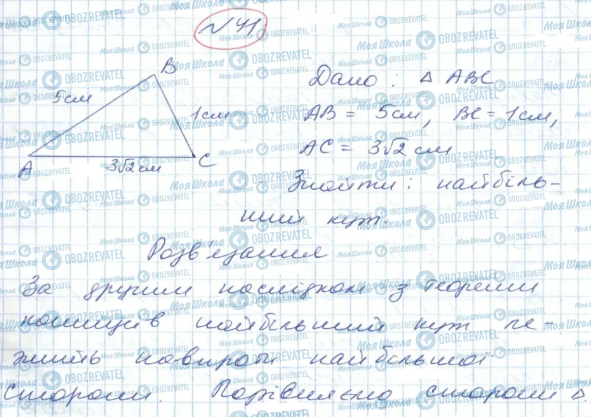 № 41
B
5 см
1 см
A
3√2 см
C
Дано: △ ABC
AB = 5 см, BC = 1 см,
AC = 3√2 см
Знайти: найбіль-
ший кут.
Розв'язання
За другим наслідком з теореми
косинусів найбільший кут ле-
жить навпроти найбільшої
сторони. Порівняємо сторони △